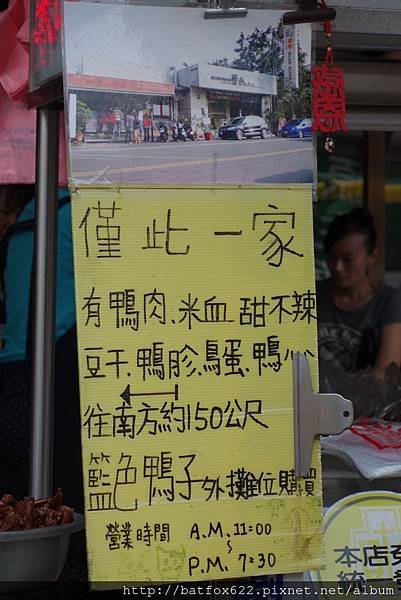 僅此一家
有鴨肉.米血.甜不辣
豆干.鴨胗.鳥蛋.鴨心
往南方約150公尺
籃色鴨子外攤位購買
營業時間 A.M. 11:00
~
P.M. 7:30
本店免
http://batfox622.pixnet.net/album